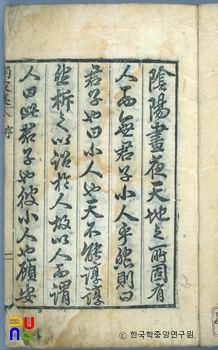 陰陽晝夜天地之所固有
人而無君子小人乎然則曰
君子也曰小人也天不能諄諄
然析之以詔於人故以人而謂
人曰此君子也彼小人也顧安
序
ⓒ 한국학중앙연구원